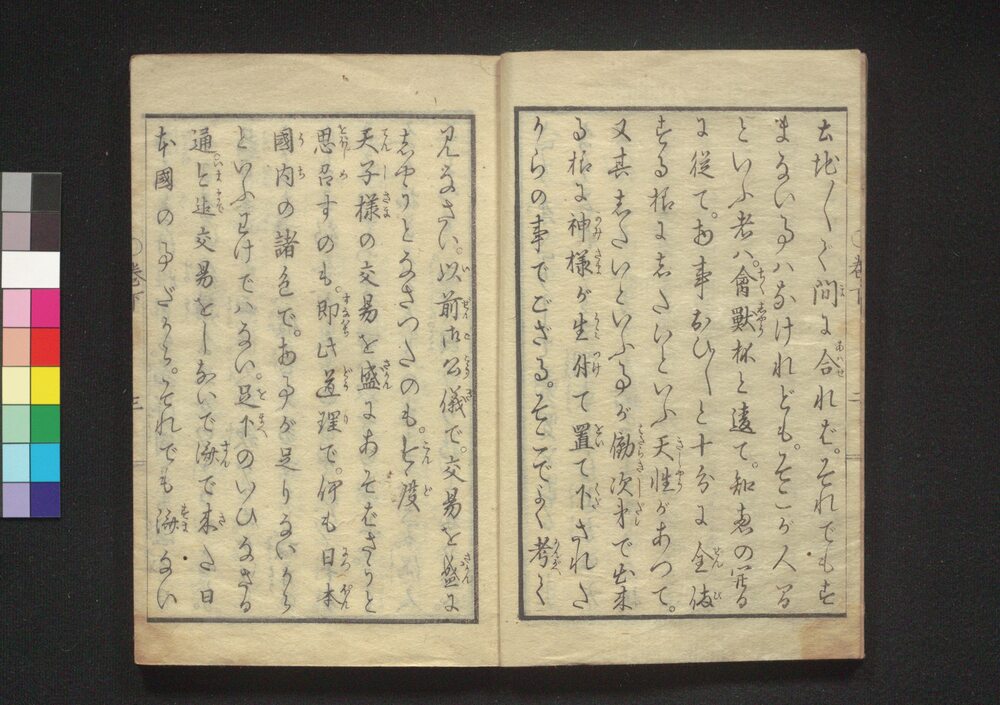 土地〳〵で間に合れバ。それでもす
まないふ事ハなけれども。そこが人間
といふ者ハ。禽獣杯と違て。知恵の開る
に従て。為事おひ〳〵と十分に全備
する樣にしたいといふ天性があつて。
又其したいといふ事が働次第で出来
る様に神様が生付て置て下された
からの事でござる。そこでよく考て
見なさい。以前御公儀で。交易を盛に
しやうとなさつたのも。今度
天子様の交易を盛にあそばさうと
思召すのも。即此道理で。何も日本
國内の諸色で。為事が足りないから
といふわけでハない。足下のいひなさる
通と迄交易をしないで済で来た日
本國の事だから。それでも済ない
巻下 二
巻下 三